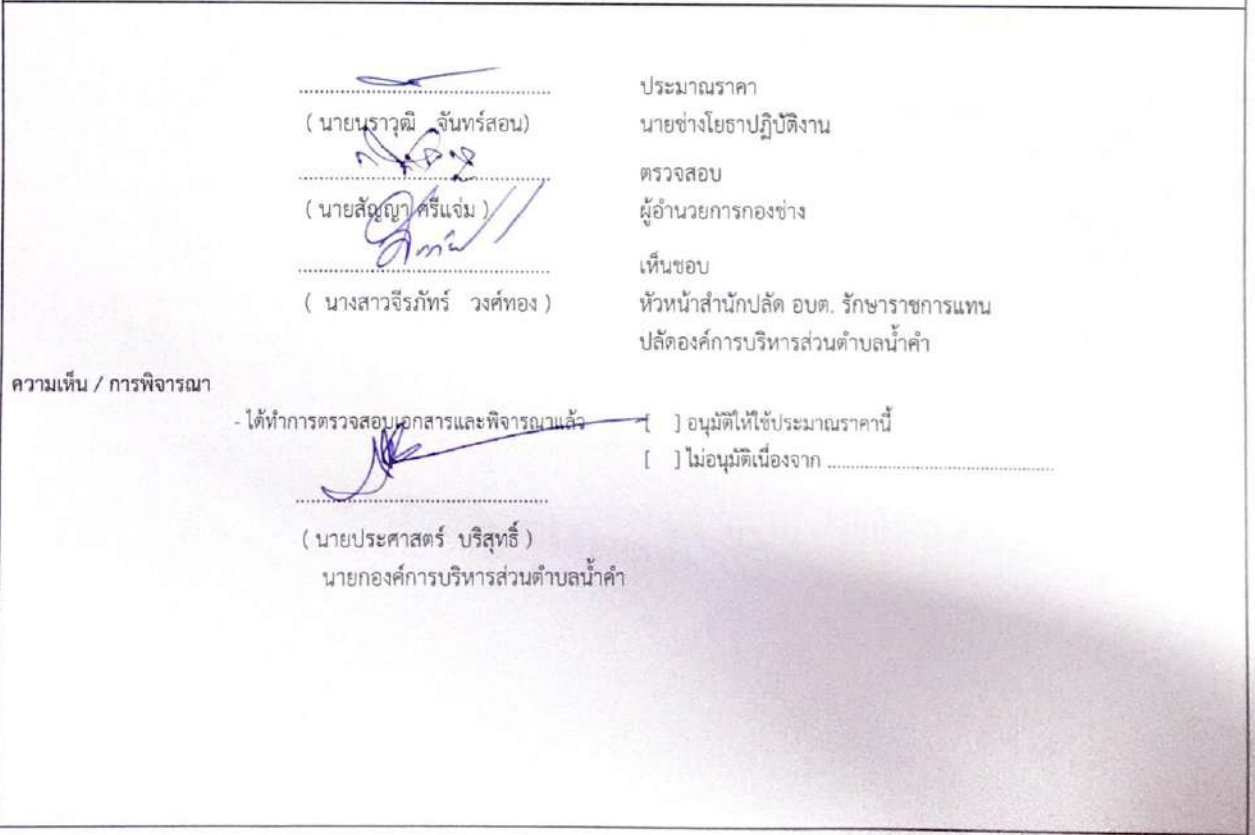 .................................................... ประมาณราคา
( นายนราวุฒิ จันทร์สอน) นายช่างโยธาปฏิบัติงาน
.................................................... ตรวจสอบ
( นายสัญญา ศรีแจ่ม ) ผู้อำนวยการกองช่าง
.................................................... เห็นชอบ
( นางสาวจีรภัทร์ วงศ์ทอง ) หัวหน้าสำนักปลัด อบต. รักษาราชการแทน
ปลัดองค์การบริหารส่วนตำบลน้ำคำ
ความเห็น / การพิจารณา
- ได้ทำการตรวจสอบเอกสารและพิจารณาแล้ว [ ] อนุมัติให้ใช้ประมาณราคานี้
[ ] ไม่อนุมัติเนื่องจาก ....................................................
....................................................
( นายประศาสตร์ บริสุทธิ์ )
นายกองค์การบริหารส่วนตำบลน้ำคำ